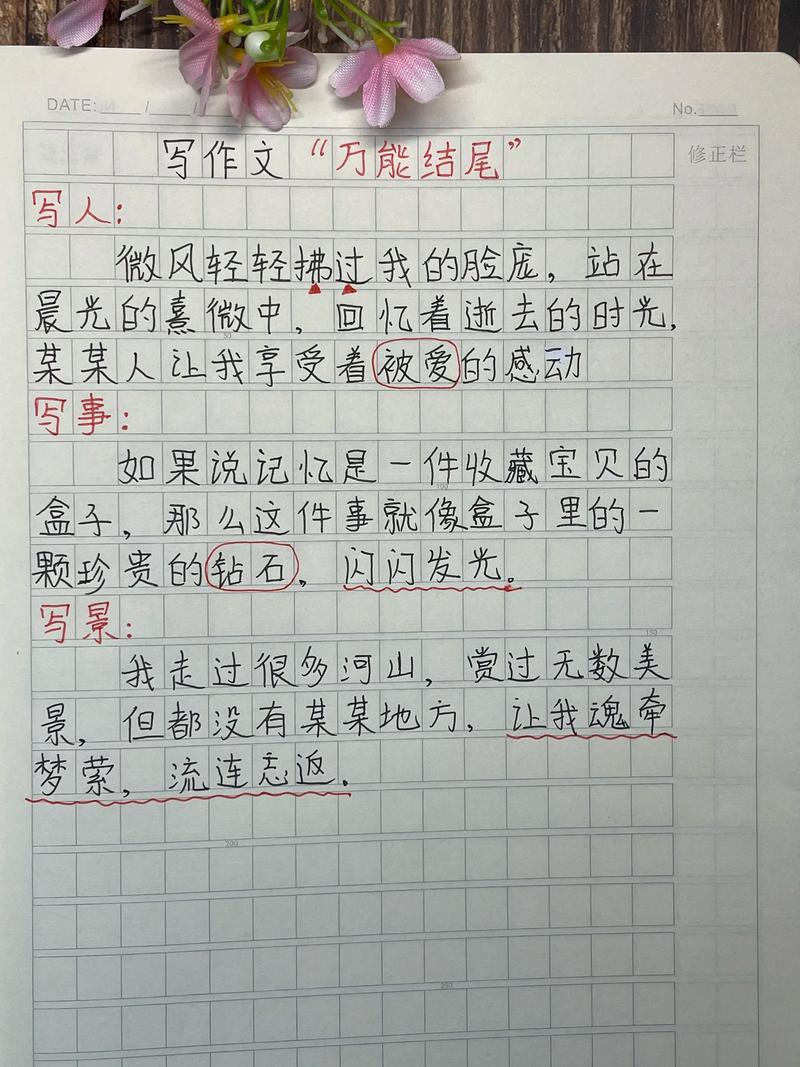 DATE: / /
No.
写作文“万能结尾”
修正栏
写人:
微风轻轻拂过我的脸庞，站在
晨光的熹微中，回忆着逝去的时光，
某某人让我享受着被爱的感动
写事:
如果说记忆是一件收藏宝贝的
100
盒子，那么这件事就像盒子里的一
颗珍贵的钻石，闪闪发光。
写景:
150
我走过很多河山，赏过无数美
景，但都没有某某地方，让我魂牵
梦萦，流连忘返。
200
250